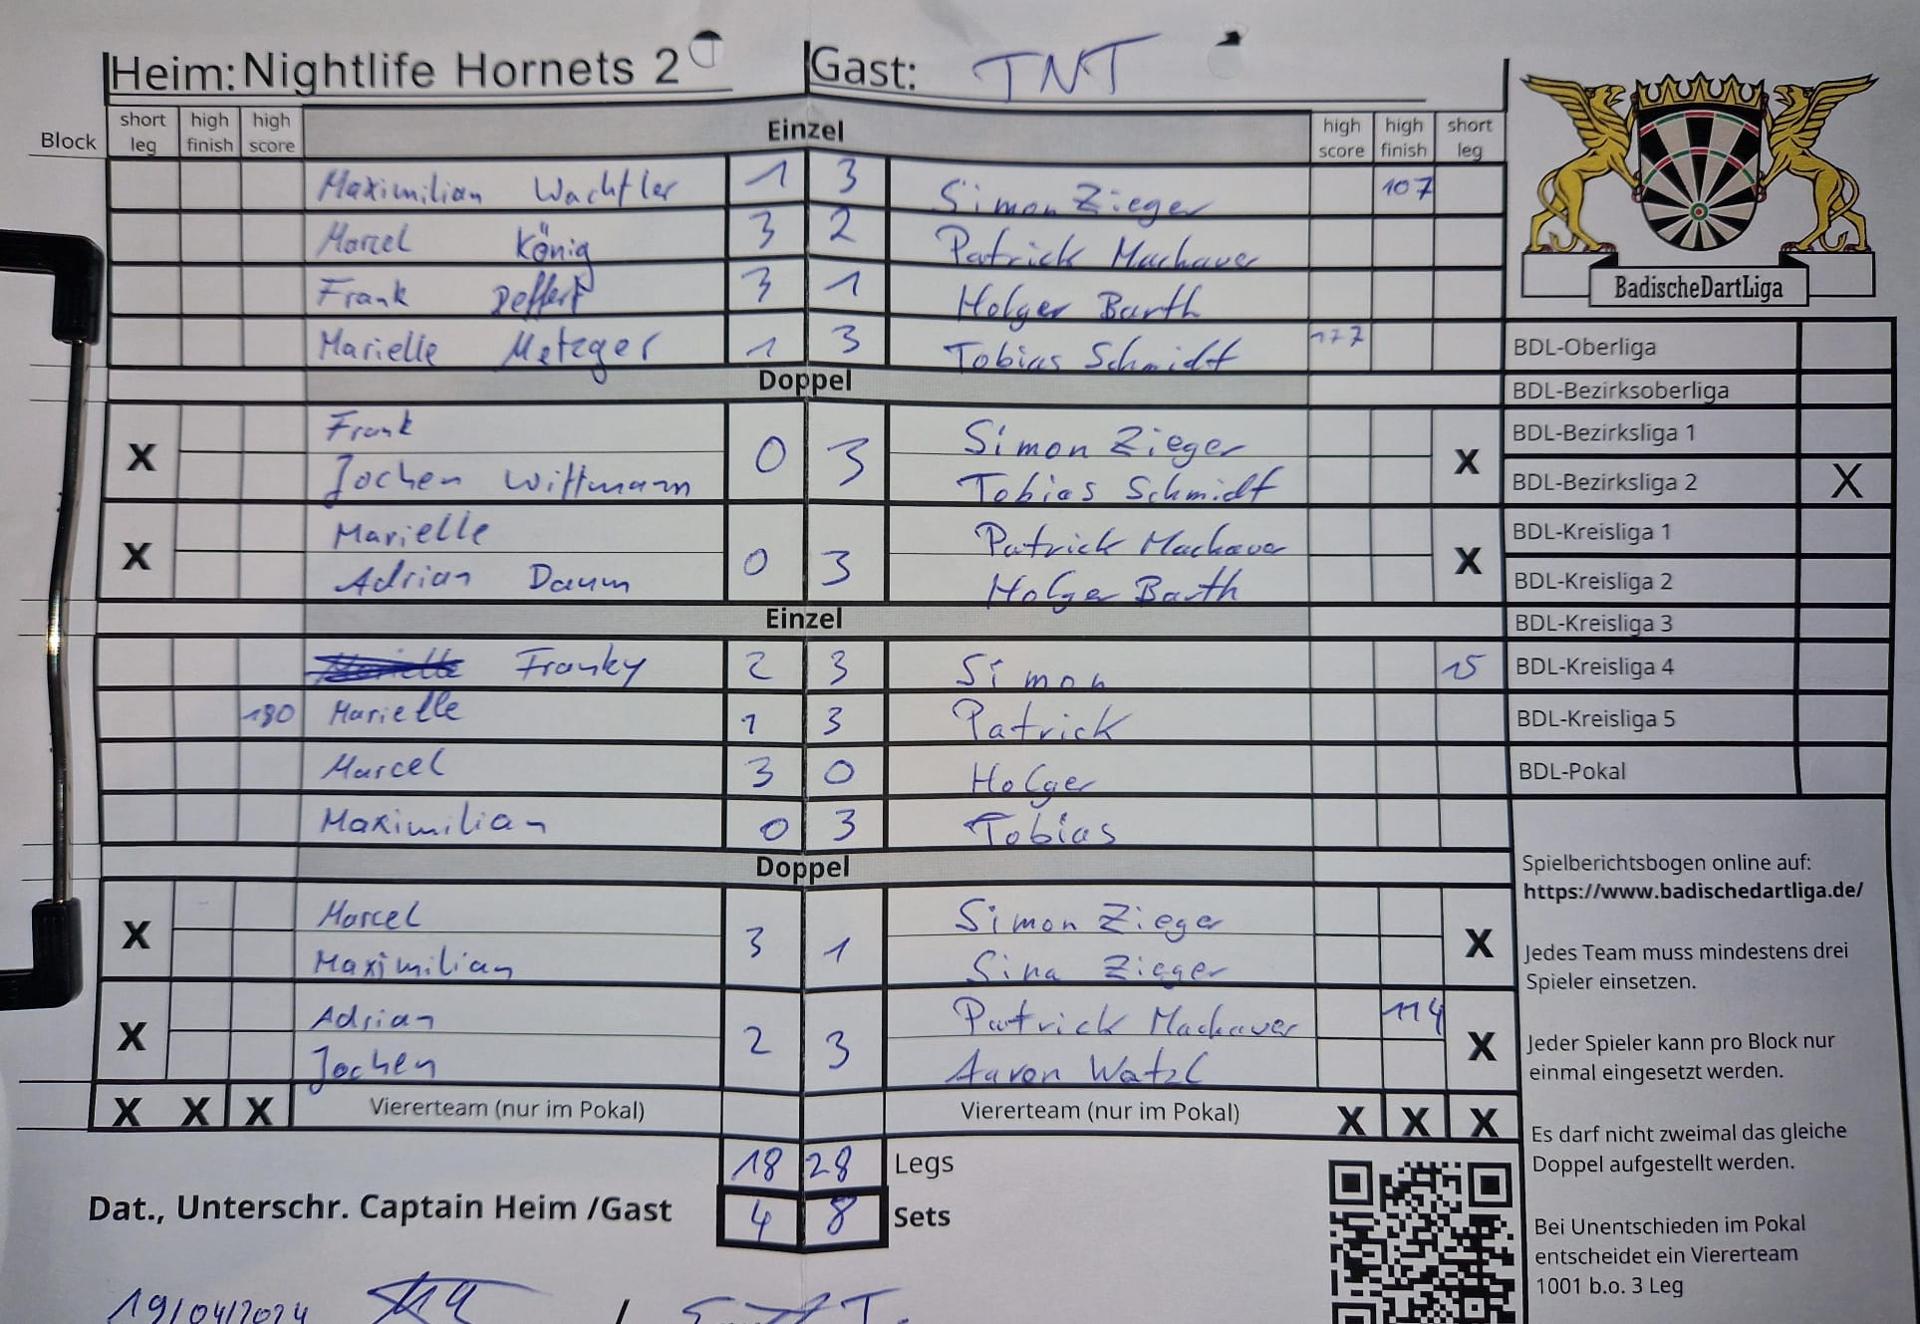 Heim: Nightlife Hornets 2 Gast: TNT
Block short leg high finish high score Einzel high score high finish short leg
Maximilian Wachtler 1 3 Simon Zieger 107
Marcel König 3 2 Patrick Machauer
Frank Deffert 3 1 Holger Barth
Marielle Metzger 1 3 Tobias Schmidt 177
Doppel
X Frank 0 3 Simon Zieger X
Jochen Wittmann Tobias Schmidt
X Marielle 0 3 Patrick Machauer X
Adrian Daum Holger Barth
Einzel
Franky 2 3 Simon 15
180 Marielle 1 3 Patrick
Marcel 3 0 Holger
Maximilian 0 3 Tobias
Doppel
X Marcel 3 1 Simon Zieger X
Maximilian Sina Zieger
X Adrian 2 3 Patrick Machauer 114 X
Jochen Aaron Watzl
X X X Viererteam (nur im Pokal) Viererteam (nur im Pokal) X X X
18 28 Legs
Dat., Unterschr. Captain Heim /Gast 4 8 Sets
19/04/2024 /
BadischeDartLiga
BDL-Oberliga
BDL-Bezirksoberliga
BDL-Bezirksliga 1
BDL-Bezirksliga 2 X
BDL-Kreisliga 1
BDL-Kreisliga 2
BDL-Kreisliga 3
BDL-Kreisliga 4
BDL-Kreisliga 5
BDL-Pokal
Spielberichtsbogen online auf:
https://www.badischedartliga.de/
Jedes Team muss mindestens drei
Spieler einsetzen.
Jeder Spieler kann pro Block nur
einmal eingesetzt werden.
Es darf nicht zweimal das gleiche
Doppel aufgestellt werden.
Bei Unentschieden im Pokal
entscheidet ein Viererteam
1001 b.o. 3 Leg